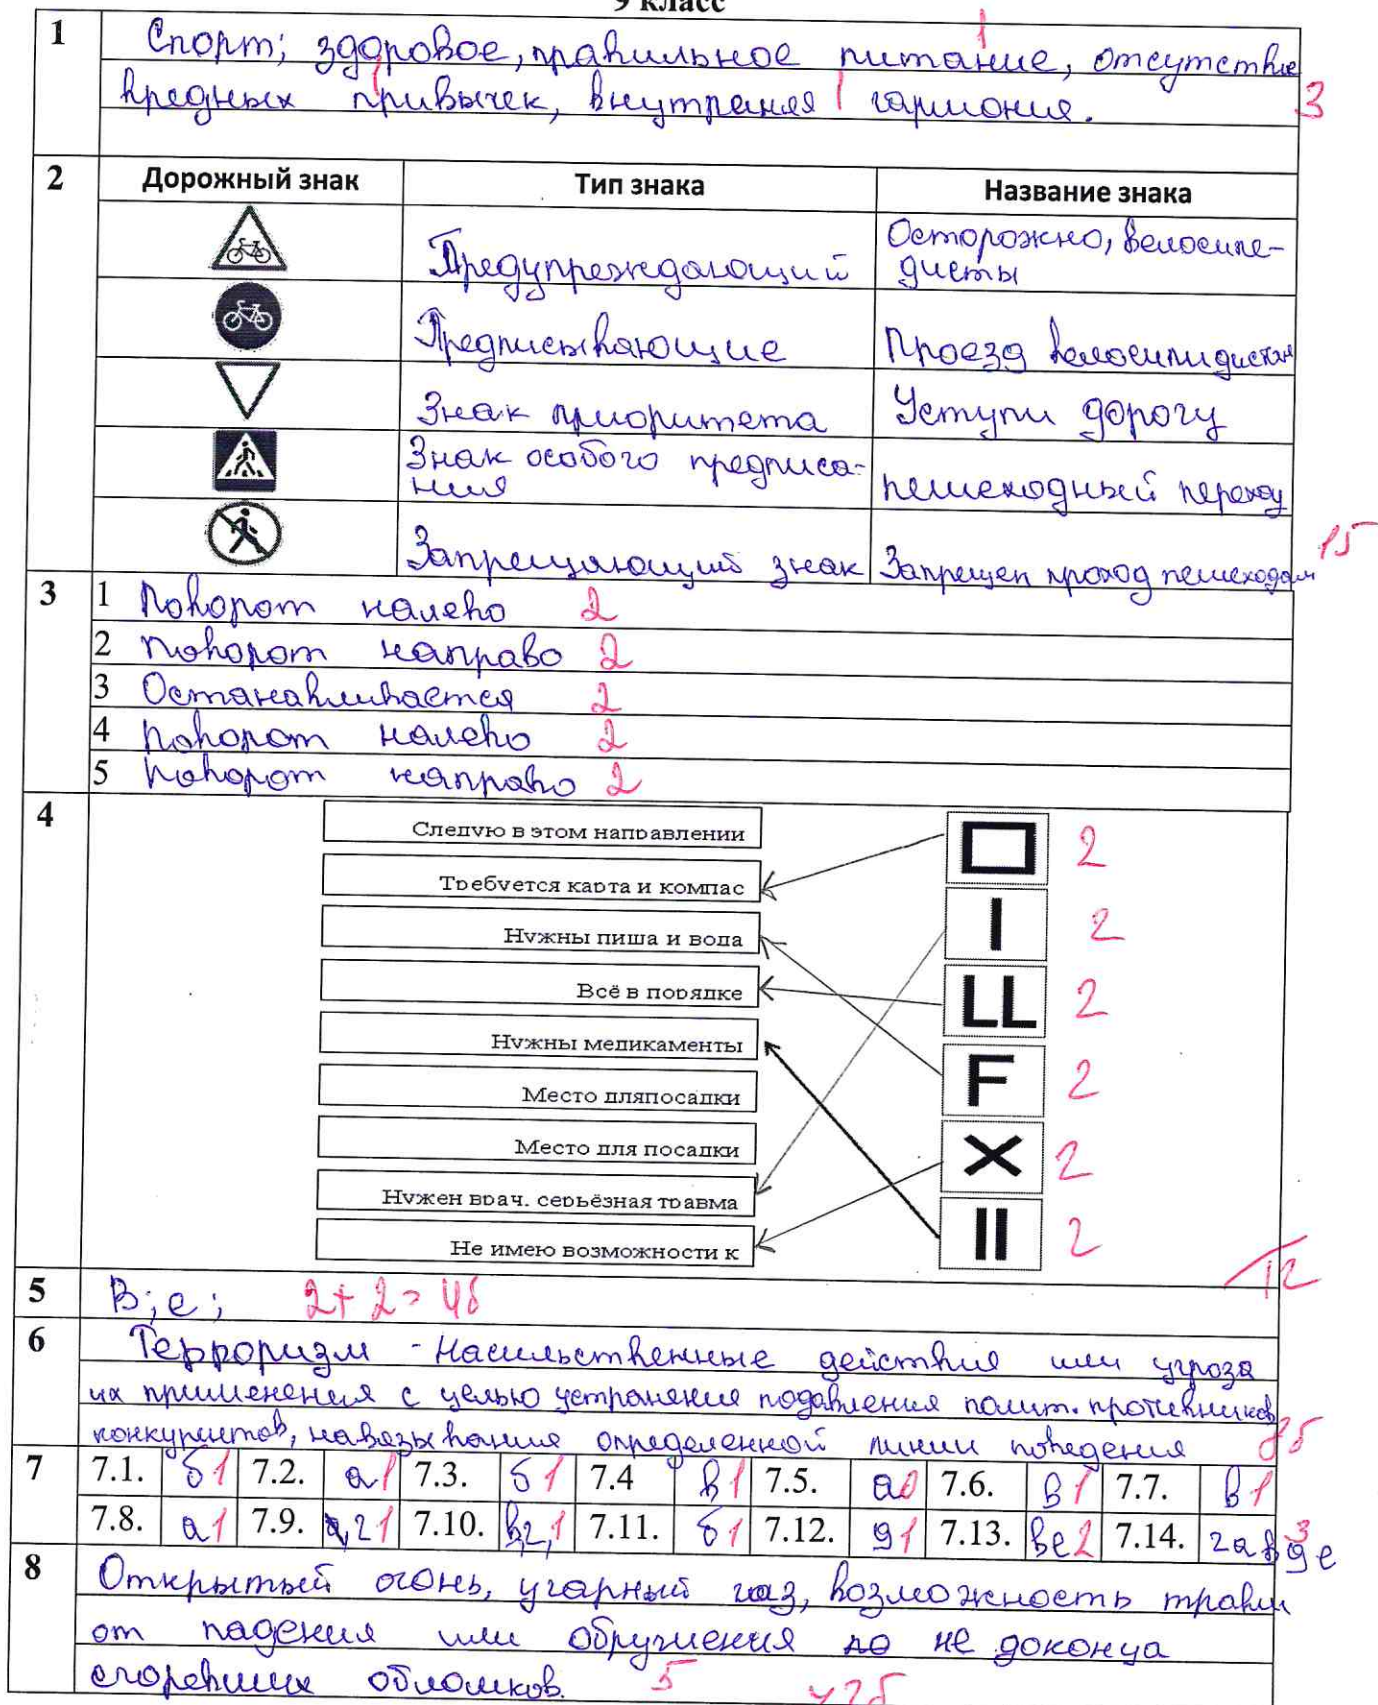 9 класс
1 Спорт; здоровое, правильное питание, отсутствие 1
вредных привычек, внутраняя гармония. 1 1 3
2 Дорожный знак Тип знака Название знака
Предупреждающий Осторожно, велосипе-
дисты
Предписывающие Проезд велосипидистам
Знак приоритета Уступи дорогу
Знак особого предписа-
ния пешеходный переход
Запрещяющий знак Запрещен проход пешеходам 15
3 1 Поворот налево 2
2 Поворот направо 2
3 Останавливается 2
4 Поворот налево 2
5 Поворот направо 2
4 Следую в этом направлении
Требуется карта и компас 2
Нужны пища и вода I 2
Всё в порядке LL 2
Нужны медикаменты F 2
Место дляпосадки
Место для посадки X 2
Нужен врач. серьёзная травма
Не имею возможности к II 2
12
5 В; е; 2+2=4б
6 Терроризм - Насильственные действия или угроза
их применения с целью устранения подавления полит. противников,
конкурентов, навязывания определенной линии поведения
7 7.1. б 1 7.2. а 1 7.3. б 1 7.4 в 1 7.5. а 0 7.6. в 1 7.7. в 1
7.8. а 1 7.9. а,г 1 7.10. в,г, 1 7.11. б 1 7.12. д 1 7.13. ве 2 7.14. гавде 3
8 Открытый огонь, угарный газ, возможность травм
от падения или обрушения до не доконца
сгоревших обломков. 5